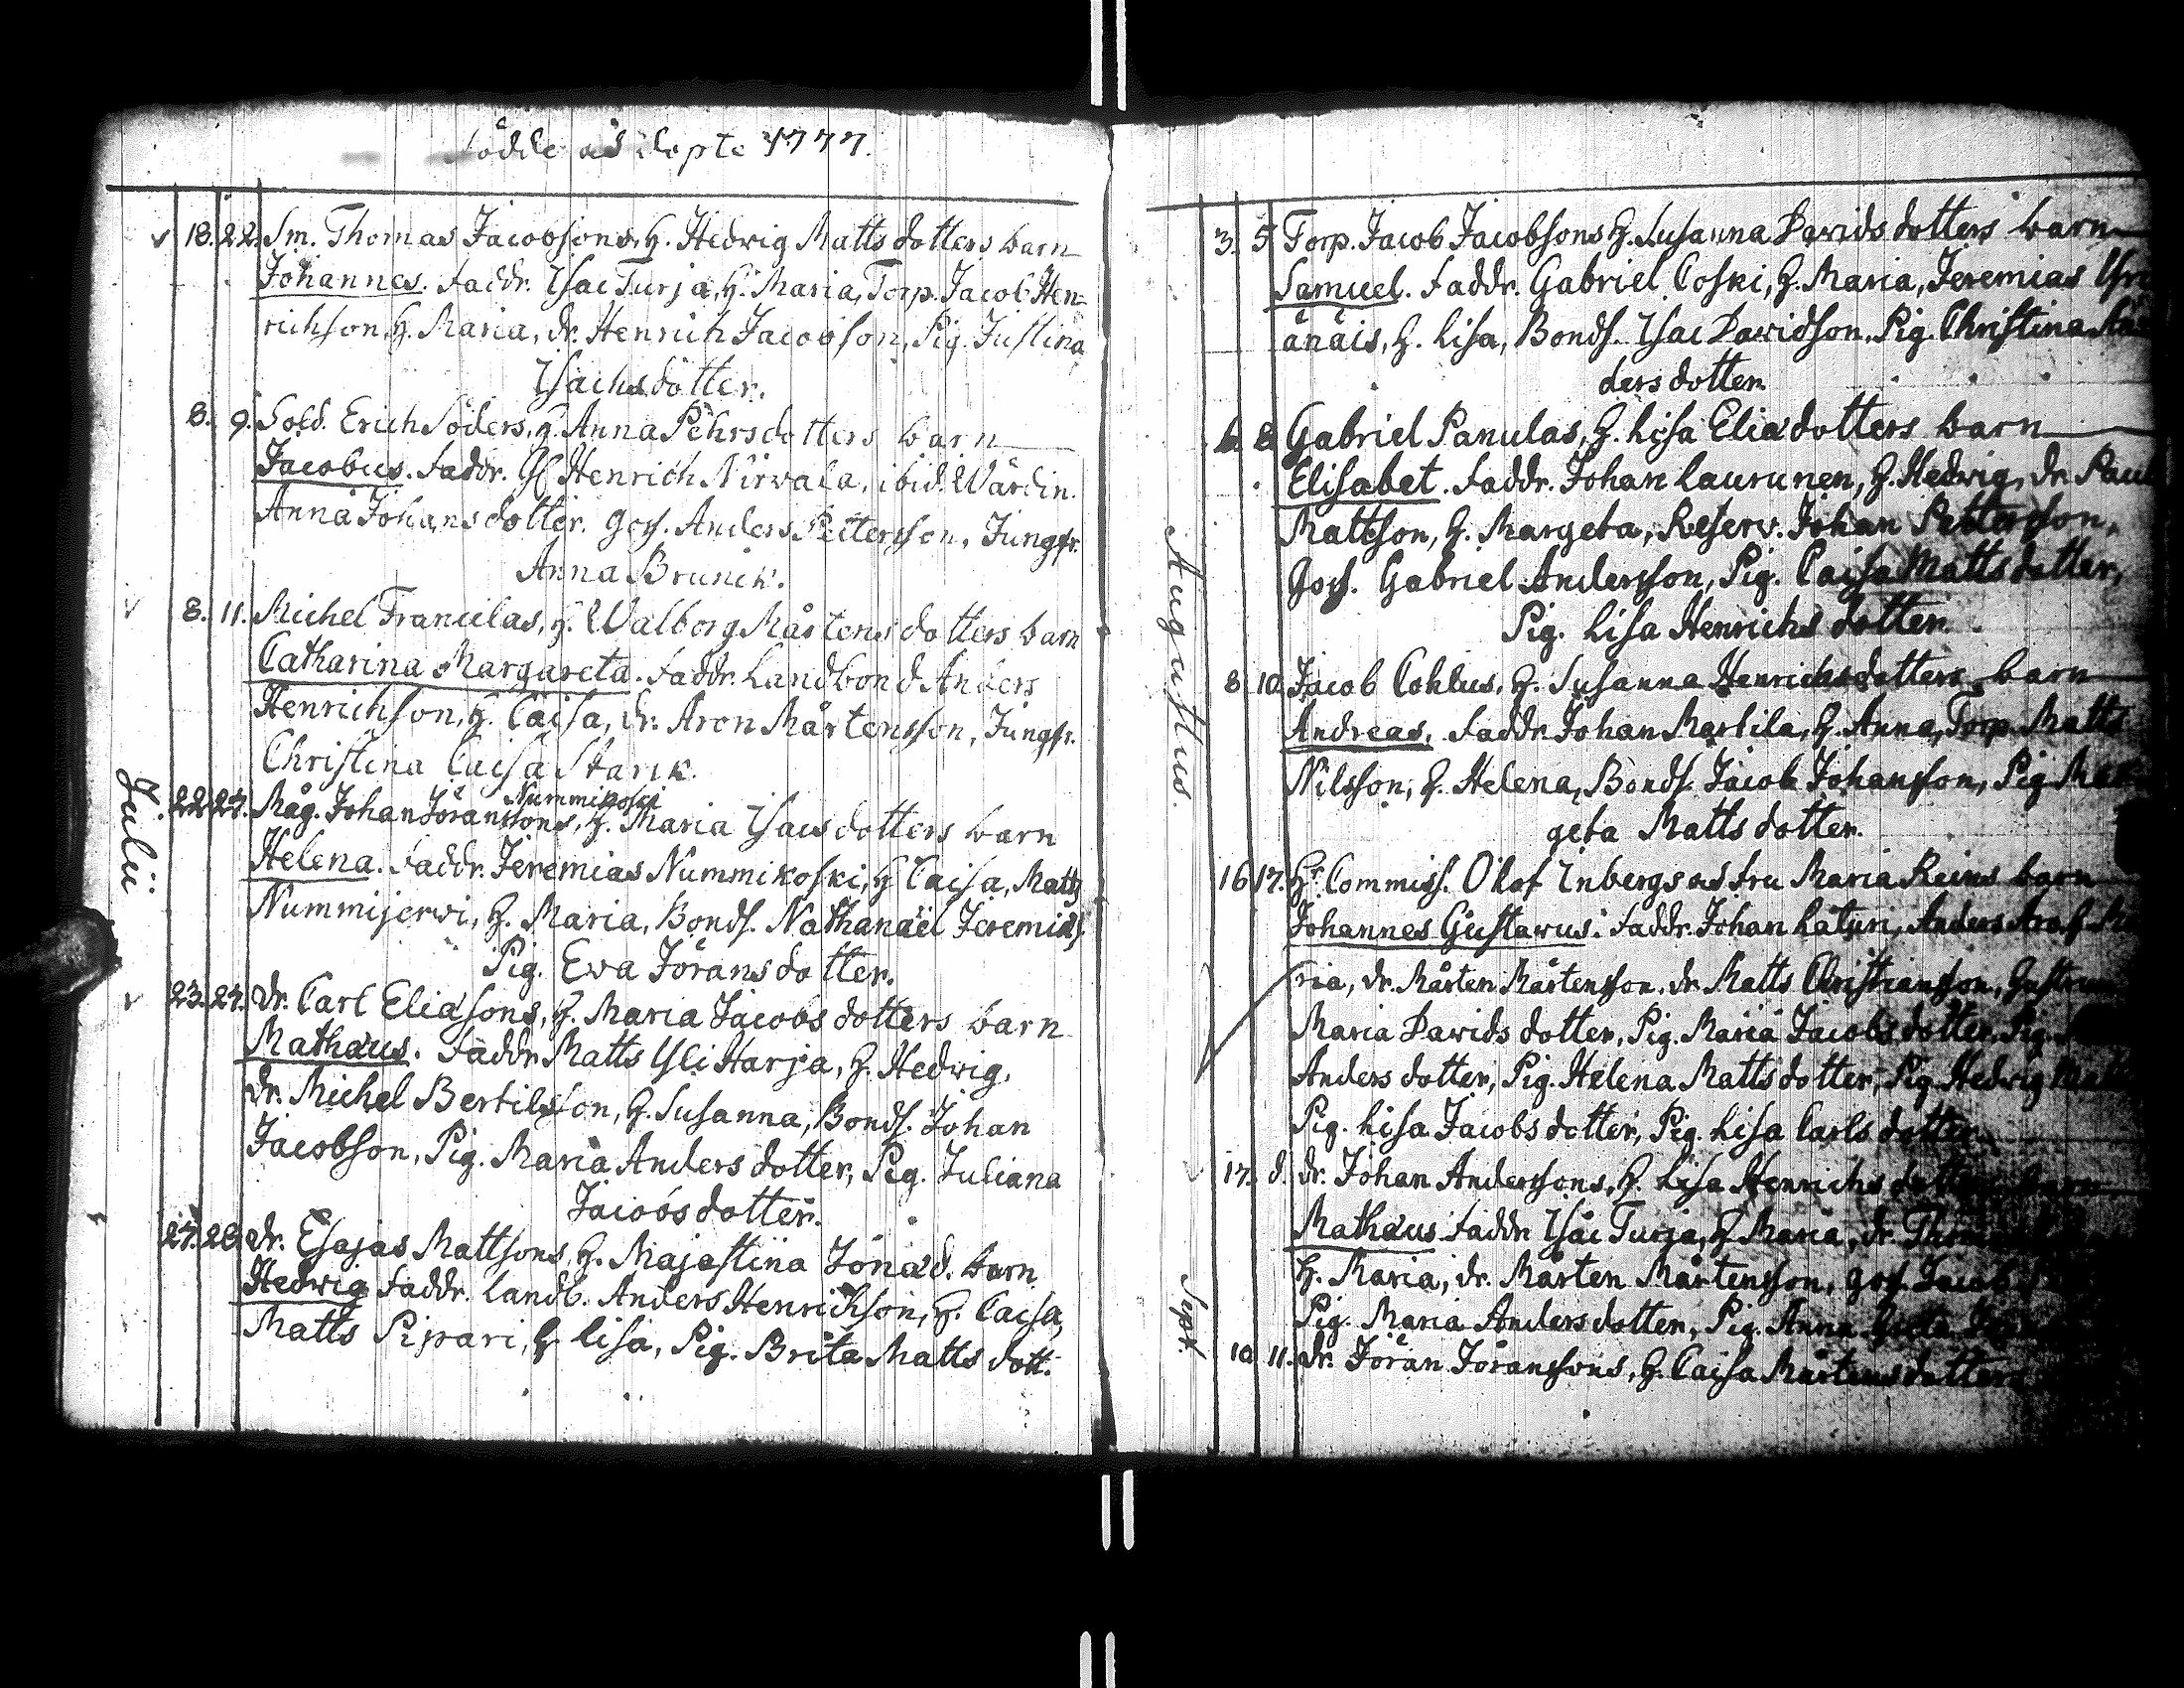 Födde och döpte 1777.
18. 22. Sm. Thomas Jacobsons, H. Hedwig Matts dotters barn
Johannes. Faddr. Isac Turja, H. Maria, Torp. Jacob Hen-
richson, H. Maria, dr. Henrich Jacobson, Pig. Justina
Isachsdotter.
8. 9. Sold. Erich Söders, H. Anna Pehrsdotters barn
Jacobus. Faddr. Henrich Nirwala, ibid. Wärdin.
Anna Johans dotter. goss. Anders Pettersson, Jungfr.
Anna Brunik.
8. 11. Michel Franulas, H. Walborg Mårtens dotters barn
Catharina Margareta. Faddr. Landbond Anders
Henrichson, H. Caisa, dr. Aron Mårtensson, Jungfr.
Christina Caisa Stank.
Nummikoski
22. 27. Måg. Johan Jöranssons, H. Maria Isacs dotters barn
Helena. Faddr. Jeremias Nummikoski, H. Caisa, Matts
Nummijerwi, H. Maria, Bonds. Nathanaël Jeremias
Pig. Ewa Jörans dotter.
Julii
23. 27. dr. Carl Eliasons, H. Maria Jacobs dotters barn
Mathæus. Faddr. Matts Yli Harja, H. Hedwig,
dr. Michel Bertilsson, H. Susanna, Bonds. Johan
Jacobson, Pig. Maria Anders dotter, Pig. Juliana
Jacobs dotter.
27. 28. dr. Esajas Mattsons, H. Majastina Jonad. barn
Hedwig Faddr. Landb. Anders Henrichson, H. Caisa,
Matts Pipari, H. Lisa, Pig. Brita Matts dott.
3. 5 Torp. Jacob Jacobsons H. Susanna Davids dotters barn
Samuel. Faddr. Gabriel Coski, H. Maria, Jeremias
änäis, H. Lisa, Bonds. Isac Davidson. Pig. Christina
ders dotter.
6. 8 Gabriel Panulas, H. Lisa Elias dotters barn
Elisabet. Faddr. Johan Laurunen, H. Hedwig, dr. Paul
Mattson, H. Margeta, Reserv. Johan Petterson,
Goss. Gabriel Andersson, Pig. Caisa Matts dotter,
Pig. Lisa Henrichs dotter.
Augustus.
8. 10 Jacob Cohlus, H. Susanna Henrichsdotters barn
Andreas. Faddr. Johan Martila, H. Anna, Torp. Matts
Nilsson, H. Helena, Bonds. Jacob Johansson, Pig. Mar
geta Matts dotter.
16 17. Hr. Commiss. Olof Inbergs och fru Maria Reins barn
Johannes Gustavus. Faddr. Johan Laturi, Anders Aro, H. Ma
ria, dr. Mårten Mårtensson, dr. Matts Christiansson,
Maria Davids dotter, Pig. Maria Jacobs dotter, Pig.
Anders dotter, Pig. Helena Matts dotter, Pig. Hedwig
Pig. Lisa Jacobs dotter, Pig. Lisa Carls dotter.
17. d. dr. Johan Anderssons, H. Lisa Henrichs dotters barn
Mathæus Faddr. Isac Turja, H. Maria, dr.
H. Maria, dr. Mårten Mårtensson, goss. Jacob
Pig. Maria Anders dotter, Pig. Anna
Sept.
10 11. dr. Jöran Jöranssons, H. Caisa Mårtens dotters